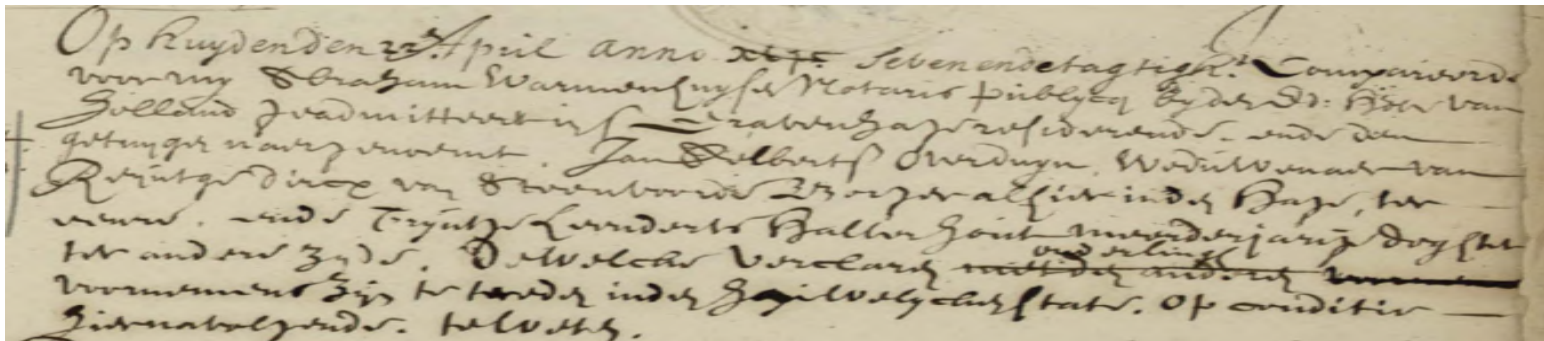 Op huyden den 22e April anno xvic sevenendetagtigh.t Compareerde
voor my Abraham Warmenhuyse Notaris publycq by den Ed: Hove van
Holland geadmitteert in s Gravenhage resideerende. ende den
getuygen naergenoemt. Jan Elberts Overduyn Weduwenaer van
Reyntge dircx van Steenvoorde Borger alhier inden Hage, ter
eenre. ende Tryntge Leenderts Halterhout meerderjarige dogter
ter andere zyde. Dewelcke verclaren met den anderen onderlinge
voornemens zyn te treden inden huwelycken state. op conditie
hiernavolgende. te weten.